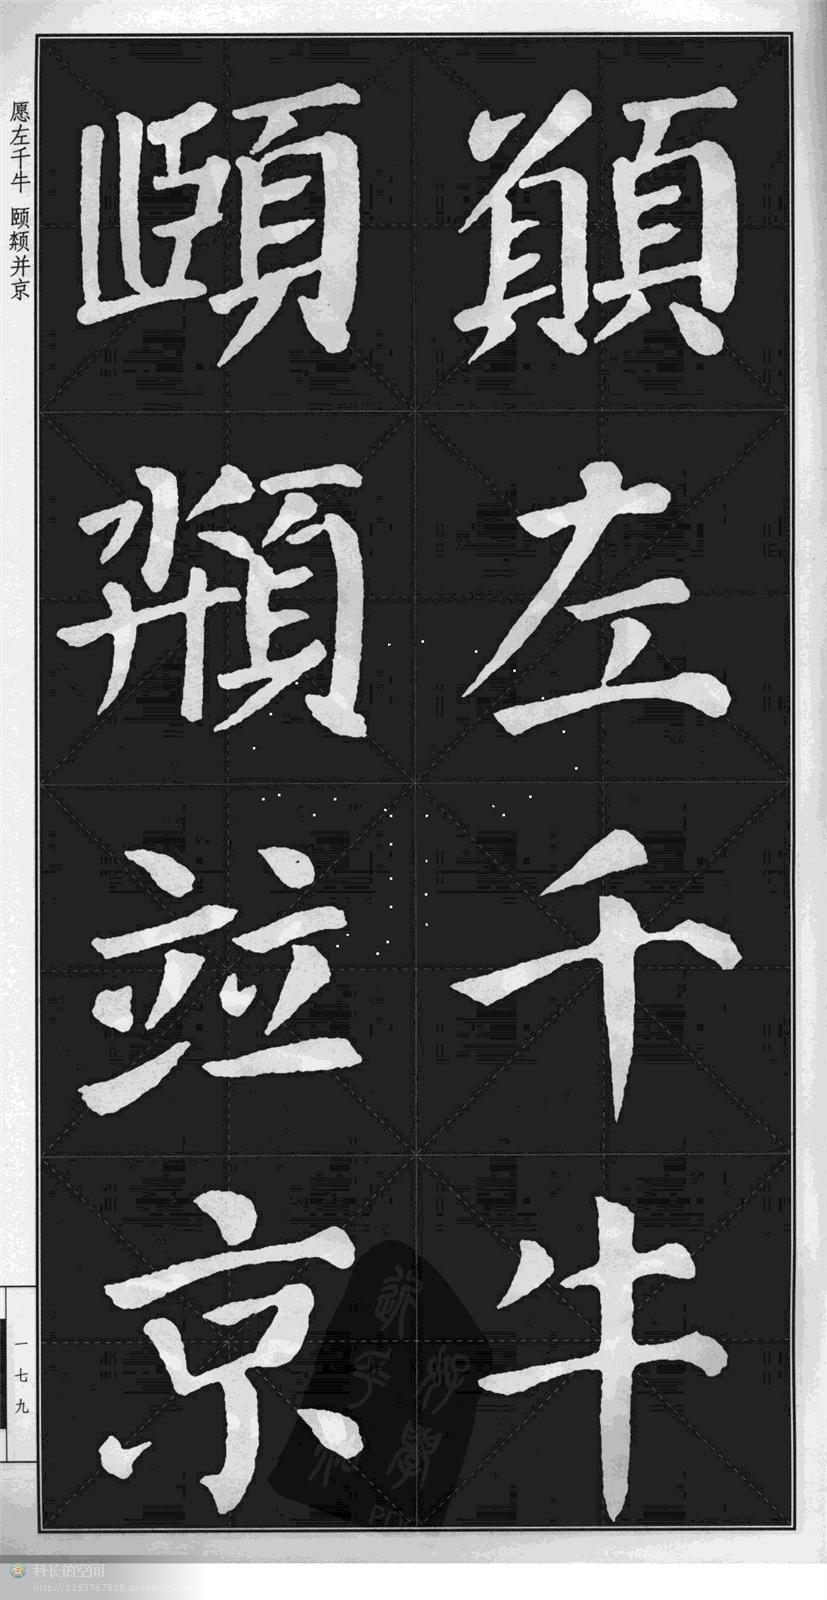 願左千牛
頤並京
愿左千牛 颐并京
一七九
科长的空间
http://1193767618.qzone.qq.com